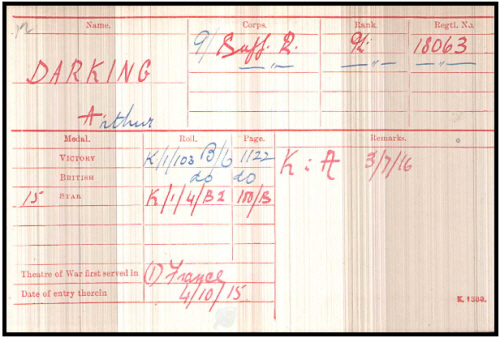 Name. Corps. Rank. Regtl. No.
9/ Suff. R. Pte 18063
DARKING — " — — " — — " —
Arthur
Medal. Roll. Page. Remarks.
VICTORY K/1/103 B/6 1122 K : A 3/7/16
BRITISH do do
15 STAR K/1/4/B2 100/B
Theatre of War first served in (1) France
Date of entry therein 4/10/15.
K. 1380.